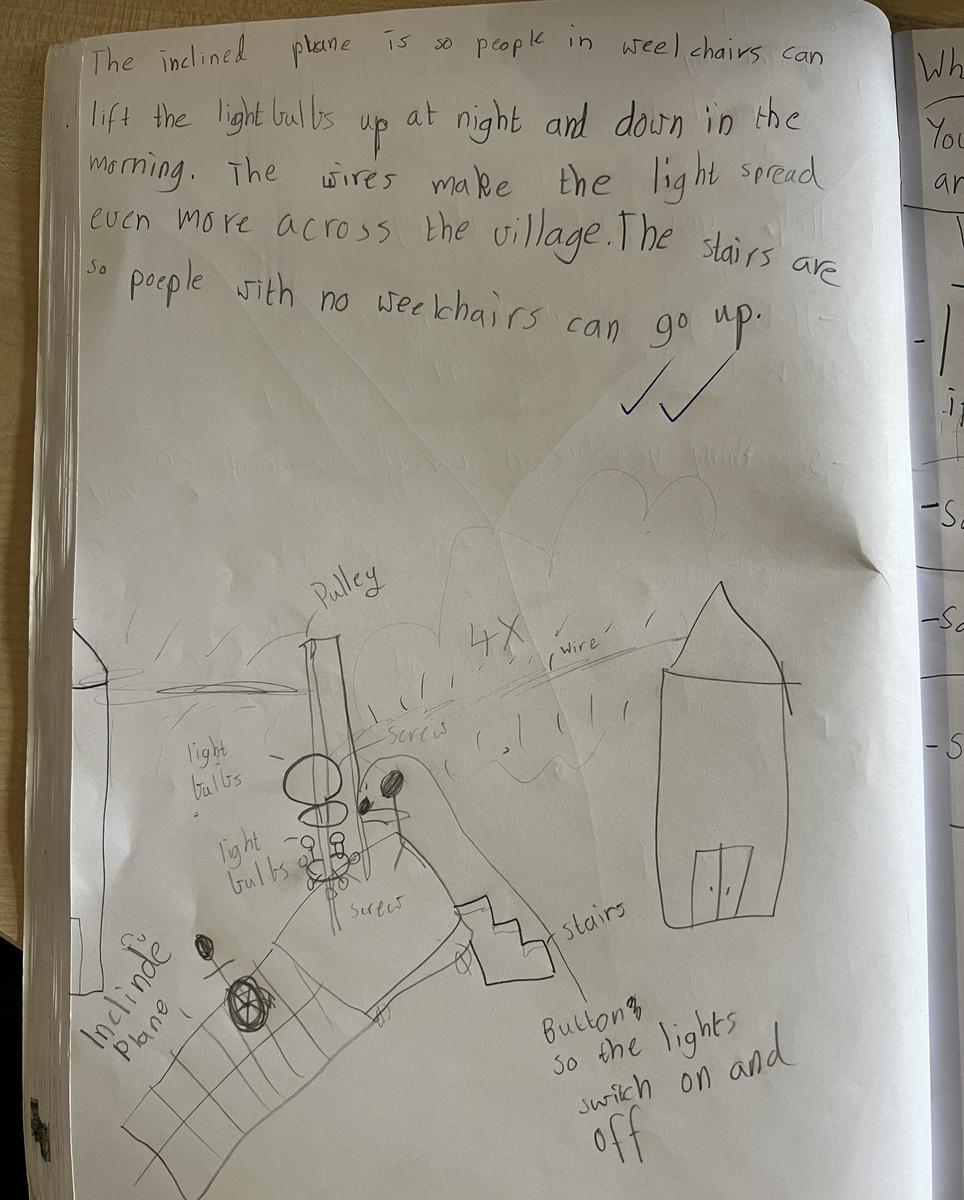 The inclined plane is so people in weelchairs can
lift the light bulbs up at night and down in the
morning. The wires make the light spread
even more across the village. The stairs are
so poeple with no weelchairs can go up.
Pulley
4X
wire
screw
light
bulbs
light
bulbs
screw
stairs
Inclinde
plane
Buttons
so the lights
switch on and
off
Wh
You
an